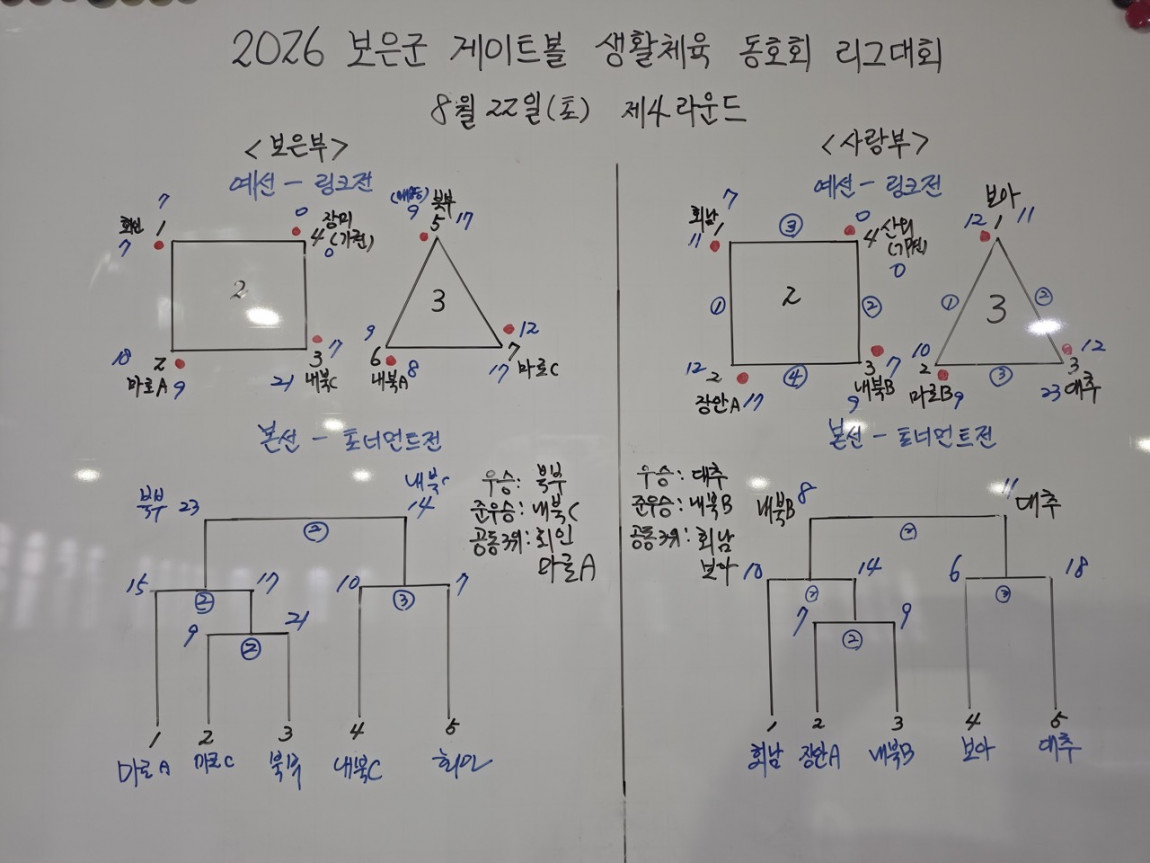 2026 보은군 게이트볼 생활체육 동호회 리그대회
8월 22일(토) 제4라운드
<보은부>
예선 - 링크전
7
회인 1
7
0
장미
4 (기권)
0
2
18 2
마로A 9
7
3
21 내북C
북부
9 5 17
3
9
6
내북A 8
12
7
17 마로C
본선 - 토너먼트전
북부 23
내북C
14
②
15 17
②
10 7
③
9 21
②
1 2 3 4 5
마로A 마로C 북부 내북C 회인
우승: 북부
준우승: 내북C
공동3위: 회인
마로A
<사랑부>
예선 - 링크전
7
회남 1
11
③
0
4
(기권)
0
① 2 ②
12 2
장안A 17
④
7
3
내북B
9
보아
12 1 11
① 3 ②
10
2
마로B 9
③
12
3
23 대추
본선 - 토너먼트전
우승: 대추
준우승: 내북B
공동3위: 회남
보아
내북B 8
11 대추
②
10 14
6 18
③
7 9
②
1 2 3 4 5
회남 장안A 내북B 보아 대추